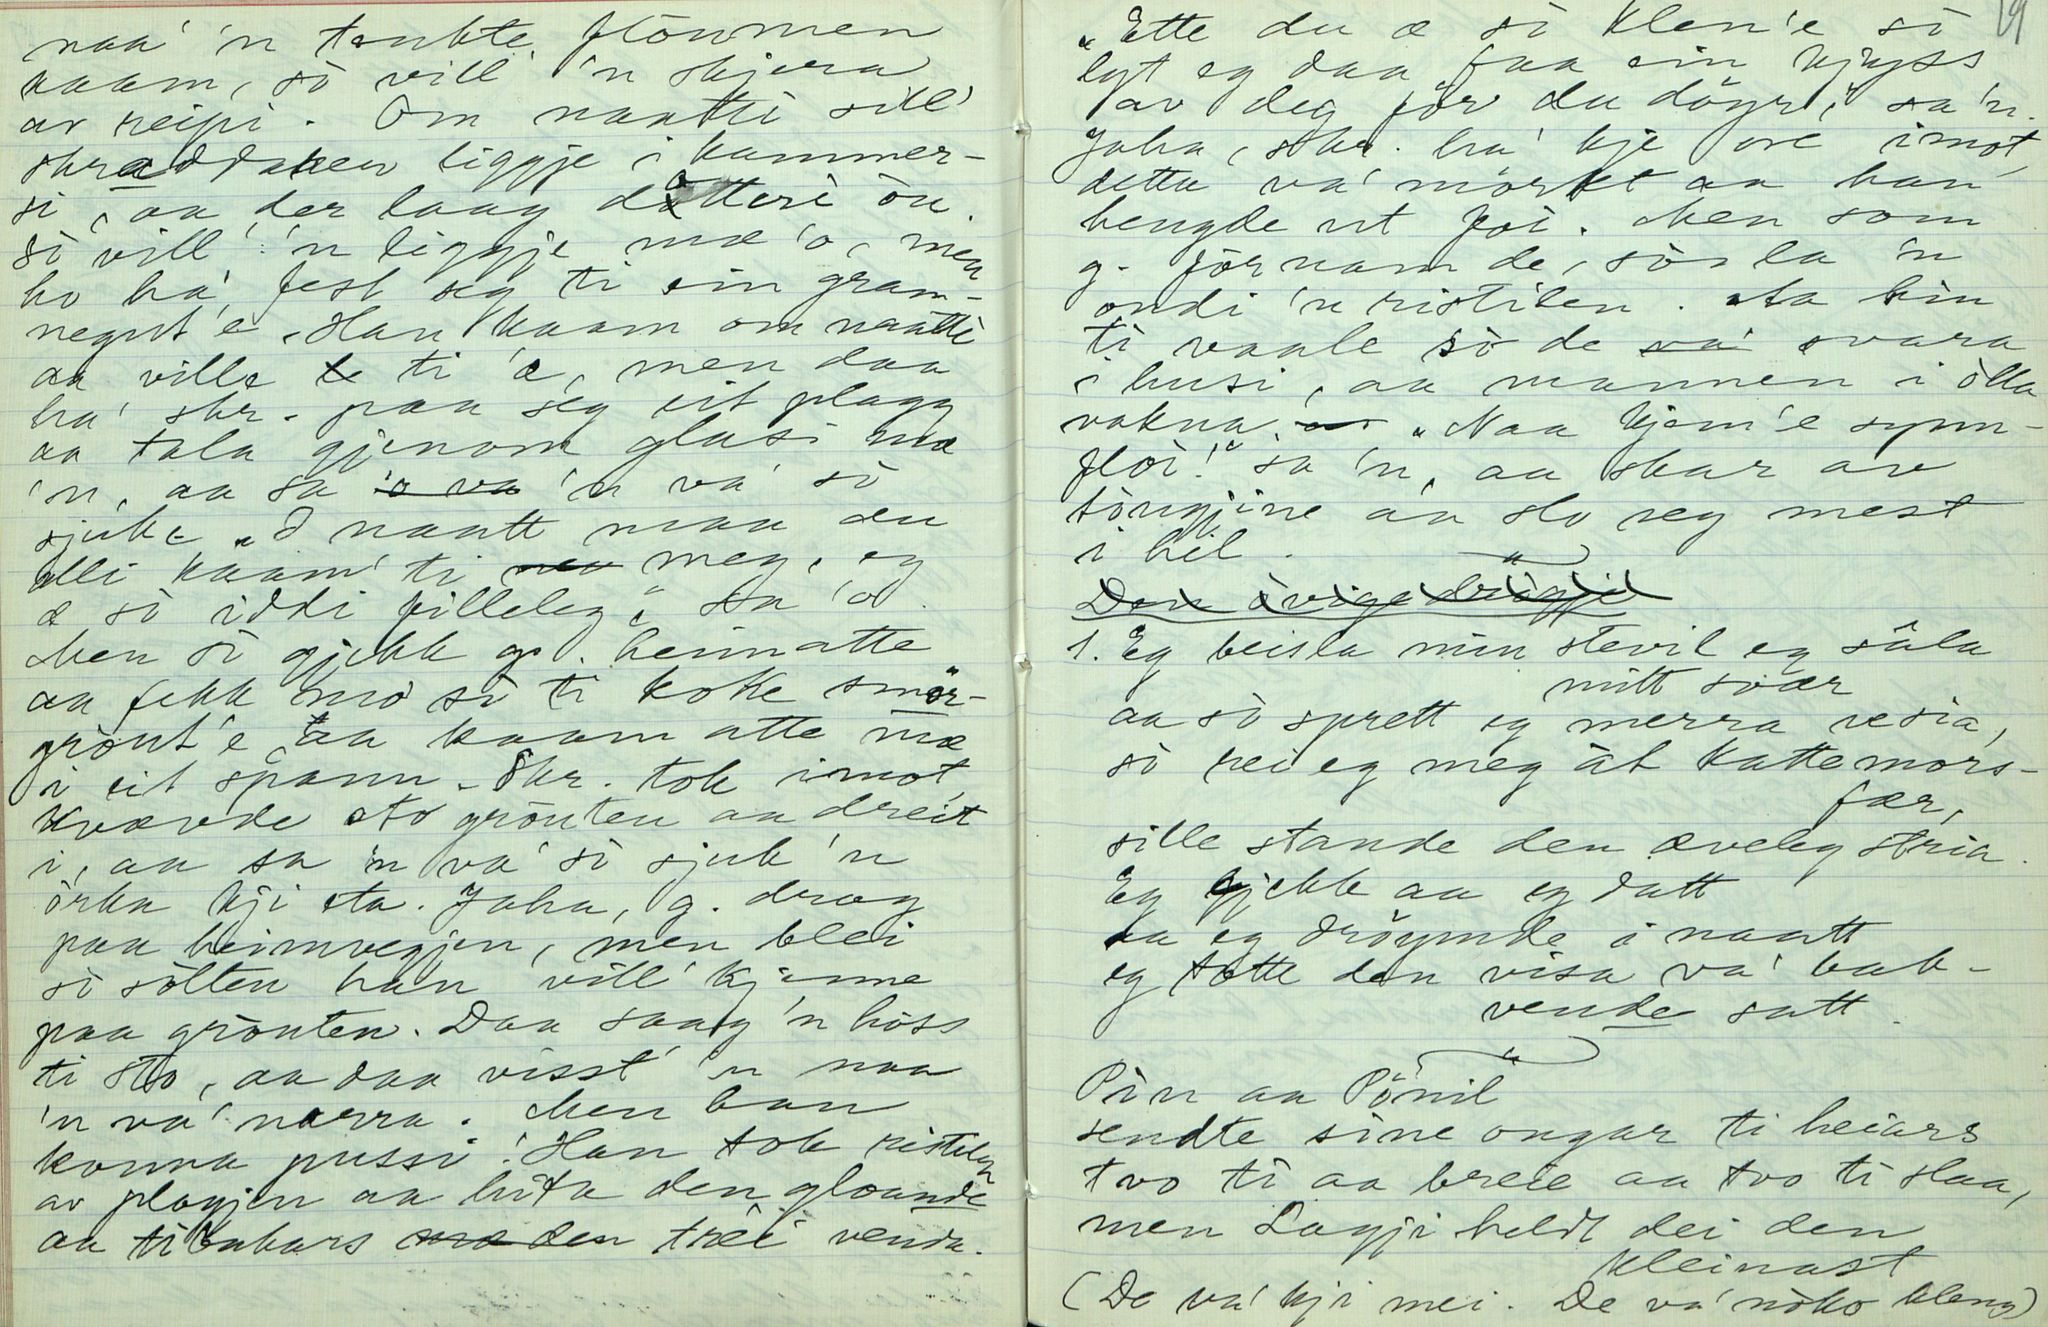 naa' 'n tenkte flöumen
kaam, sò vill' 'n skjera
av reipi. Om naatti sill'
skraddaren liggje i kammer-
si, aa der laag dòtteri òu.
Sò vill' 'n liggje mæ 'o, men
ho ha' fest seg ti ein gram-
negut'e. Han kaam om naatti
aa ville ti 'æ, men daa
ha' skr. paa seg eit plagg
aa tala gjenom glasi mæ
'n, aa sa 'n va' sò
sjuk. „I naatt maa du
alli kaam' ti meg, eg
æ sò iddi filleleg", sa 'o.
Men sò gjekk g. heimatte
aa fekk mo si ti koke smör-
gröut'e, aa kaam atte mæ
i eit spann. Skr. tok imot,
kvævde åv gröuten aa dreit
i, aa sa 'n va' sò sjuk 'n
örka kji eta. Jaha, g. drog
paa heimvegjen, men blei
sò sòlten han vill' kjenne
paa gröuten. Daa saag 'n hòss
ti sto, aa daa visst' 'n naa
'n va' narra. Men han
konna pussi! Han tok ristilen
av plogjen aa hita den gloande
aa tibakars den trei venda.
„Ette du æ sò klen'e sò
lyt eg daa faa ein kjyss
av deg för du döyr", sa 'n.
Jaha, skr. ha' kje ove imot,
detta va' mörkt aa han
hengde ut foi. Men som
g. förnam de, sò la 'n
ondi 'n ristilen. Aa hin
ti vaale sò de svara
i husi, aa mannen i ölla
vakna. „Naa kjem'e synn-
flöi!" sa 'n, aa skar av
tòugjine aa slo seg mest
i hel.
1. Eg beisla min stevil eg såla
mitt svær
aa sò sprett eg merra resia,
sò rei eg meg åt kattemors-
fær,
sille stande den æveleg stria.
Eg gjekk aa eg datt
aa eg dröymde i naatt
eg totte den visa va' bak-
vende satt.
Pìn aa Pönil
sendte sine ongar ti heiars
tvo ti aa breie aa tvo ti slaa,
men Lagji heldt dei den
kleinast
(De va' kji mei. De va' nòko kleng)